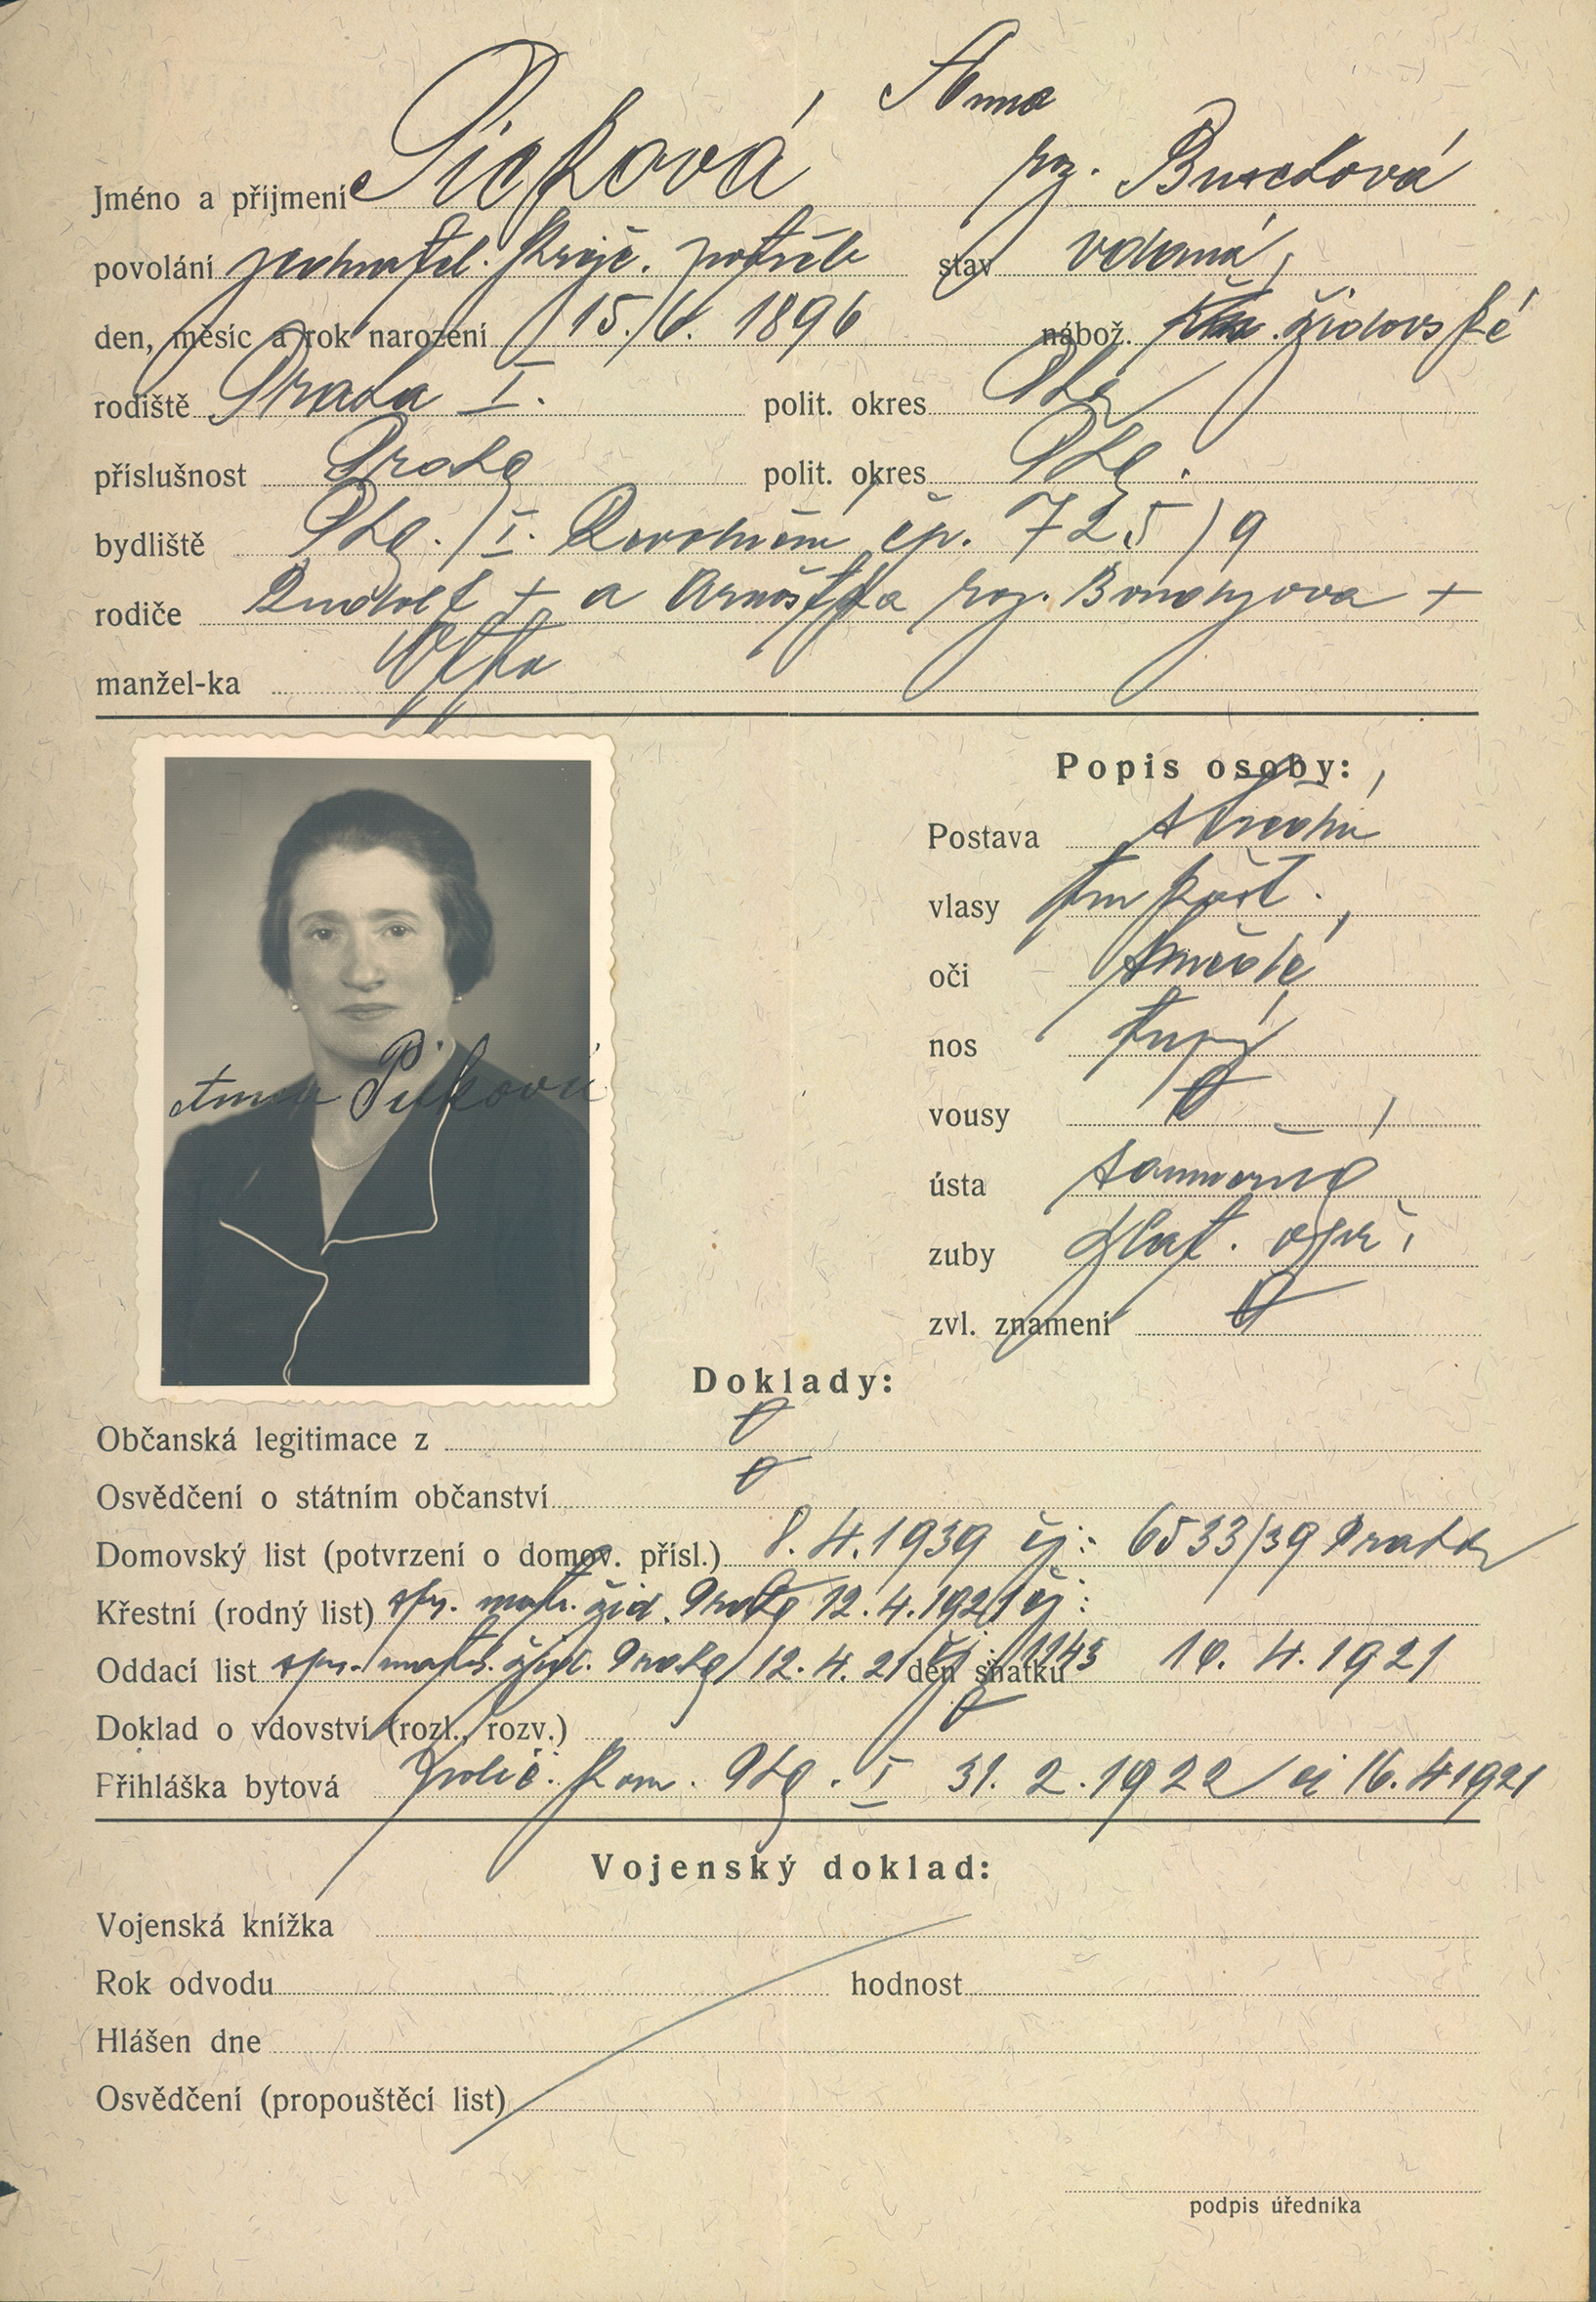 Anna
Jméno a příjmení Picková, roz. Buxdová
povolání jednatel. krejč. potřeb stav vdaná
den, měsíc a rok narození 15./6. 1896 nábož. židovské
rodiště Praha I. polit. okres Phg
příslušnost Praha polit. okres Phg.
bydliště Phg. / I. Revoluční čp. 725/9
rodiče Rudolf + a Arnoštka roz. +
manžel-ka Otto
Popis osoby:
Postava střední
vlasy tm kašt.
oči hnědé
nos tupý
vousy
ústa souměrná
zuby zlat. opr.
zvl. znamení
Anna Picková
Doklady:
Občanská legitimace z
Osvědčení o státním občanství
Domovský list (potvrzení o domov. přísl.) 8. 4. 1939 čj: 6533/39 Praha
Křestní (rodný list) spr. matr. žid. Praha 12. 4. 1921 čj:
Oddací list spr. matr. žid. Praha 12. 4. 21 čj. 1143 den sňatku 10. 4. 1921
Doklad o vdovství (rozl., rozv.)
Přihláška bytová polic. kom. Phg. I 31. 2. 1922 16. 4 1921
Vojenský doklad:
Vojenská knížka
Rok odvodu hodnost
Hlášen dne
Osvědčení (propouštěcí list)
podpis úředníka